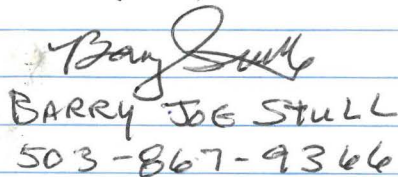 Barry Stull
BARRY JOE STULL
503-867-9366